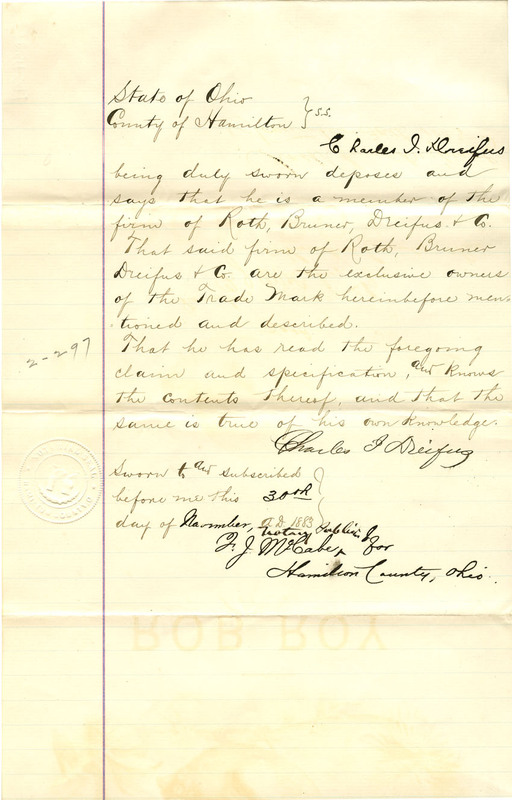 State of Ohio
County of Hamilton } S.S.
Charles I. Dreifus
being duly sworn deposes and
says that he is a member of the
firm of Roth, Bruner, Dreifus & Co.
That said firm of Roth, Bruner
Dreifus & Co. are the exclusive owners
of the Trade Mark hereinbefore men-
tioned and described.
That he has read the foregoing
claim and specification, and knows
the contents thereof, and that the
same is true of his own knowledge.
Charles I Dreifus
Sworn to and subscribed
before me this 30th
day of November, A.D. 1883
Notary Public
F. J. McCabe, for
Hamilton County, Ohio.
2-297
ROB ROY